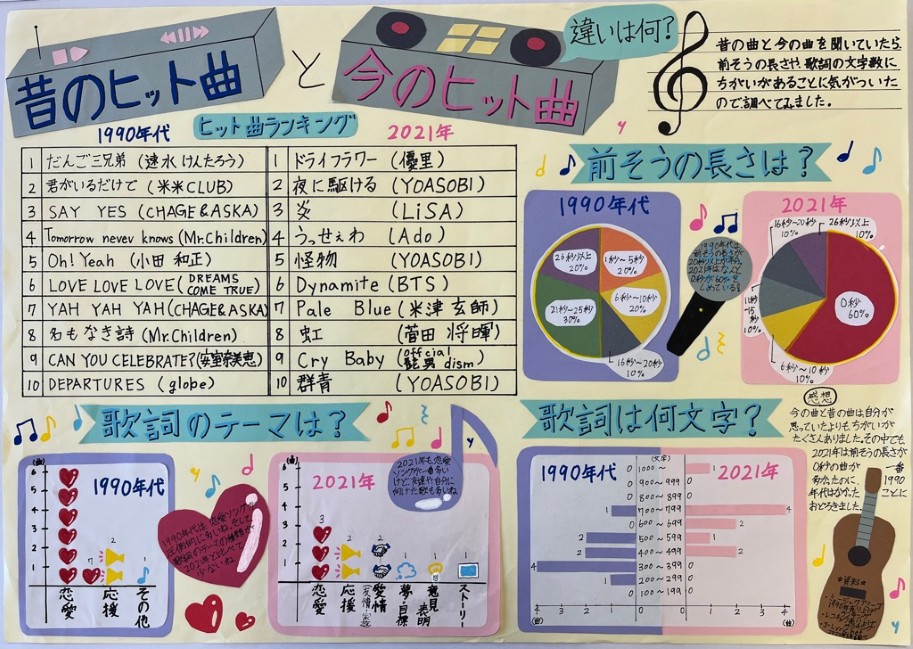 昔のヒット曲
と
今のヒット曲
違いは何?
昔の曲と今の曲を聞いていたら
前そうの長さや、歌詞の文字数に
ちがいがあることに気がついた
ので調べてみました。
1990年代
ヒット曲ランキング
2021年
1 だんご三兄弟 (速水けんたろう)
2 君がいるだけで (米米CLUB)
3 SAY YES (CHAGE&ASKA)
4 Tomorrow never knows (Mr.Children)
5 Oh! Yeah (小田 和正)
6 LOVE LOVE LOVE (DREAMS COME TRUE)
7 YAH YAH YAH (CHAGE&ASKA)
8 名もなき詩 (Mr.Children)
9 CAN YOU CELEBRATE? (安室奈美恵)
10 DEPARTURES (globe)
1 ドライフラワー (優里)
2 夜に駆ける (YOASOBI)
3 炎 (LiSA)
4 うっせぇわ (Ado)
5 怪物 (YOASOBI)
6 Dynamite (BTS)
7 Pale Blue (米津 玄師)
8 虹 (菅田 将暉)
9 Cry Baby (Official髭男dism)
10 群青 (YOASOBI)
前そうの長さは?
1990年代
26秒以上
20%
1秒~5秒
20%
6秒~10秒
20%
21秒~25秒
30%
16秒~20秒
10%
1990年代は
前そうの長さが
2021年はなんと
2021年
16秒~20秒
10%
26秒以上
10%
0秒
60%
11秒~15秒
10%
6秒~10秒
10%
歌詞のテーマは?
(曲)
6
5
4
3
2
1
1990年代
7
2
1
恋愛
応援
その他
1990年代は、恋愛ソングが
圧倒的に多いね。そして
歌詞のテーマの種類が
2021年とくらべて
少ないね。
(曲)
6
5
4
3
2
1
2021年
3
2
2
1
1
1
恋愛
応援
愛情
夢・目標
意見表明
ストーリー
2021年も恋愛
ソングが一番多い
けど、友達や自分に
向けた歌も多いね
歌詞は何文字?
1990年代
2021年
(文字)
0 1000~ 1
0 900~999 0
0 800~899 0
1 700~799 4
0 600~699 2
2 500~599 1
2 400~499 2
4 300~399 0
1 200~299 0
0 100~199 0
4 3 2 1 0
(曲)
0 1 2 3 4
(曲)
感想
今の曲と昔の曲は自分が
思っていたよりもちがいが
たくさんありました。その中でも
2021年は前そうの長さが
0秒の曲が一番
多かったのに、1990
年代はなかったことに
おどろきました。